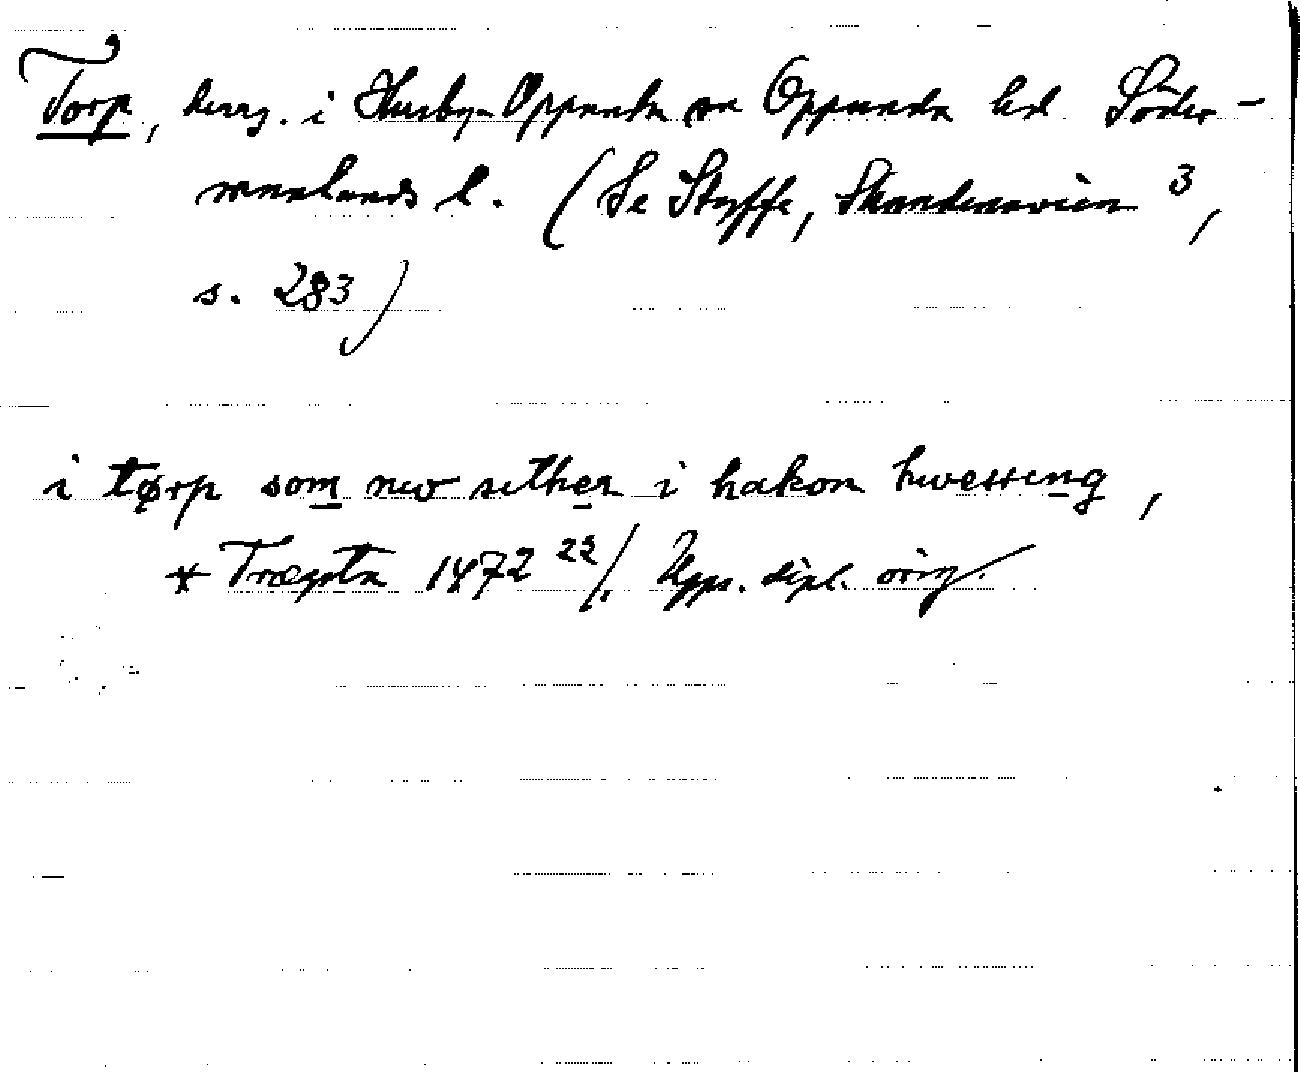 Torp, herrg. i Husby-Oppunda sn Oppunda hd Söder-
manlands l. (Se Styffe, Skandinavien 3,
s. 283)
i tørp som nw sither i hakon hwessing,
* Træpta 1472 22/. Upps. dipl. orig.